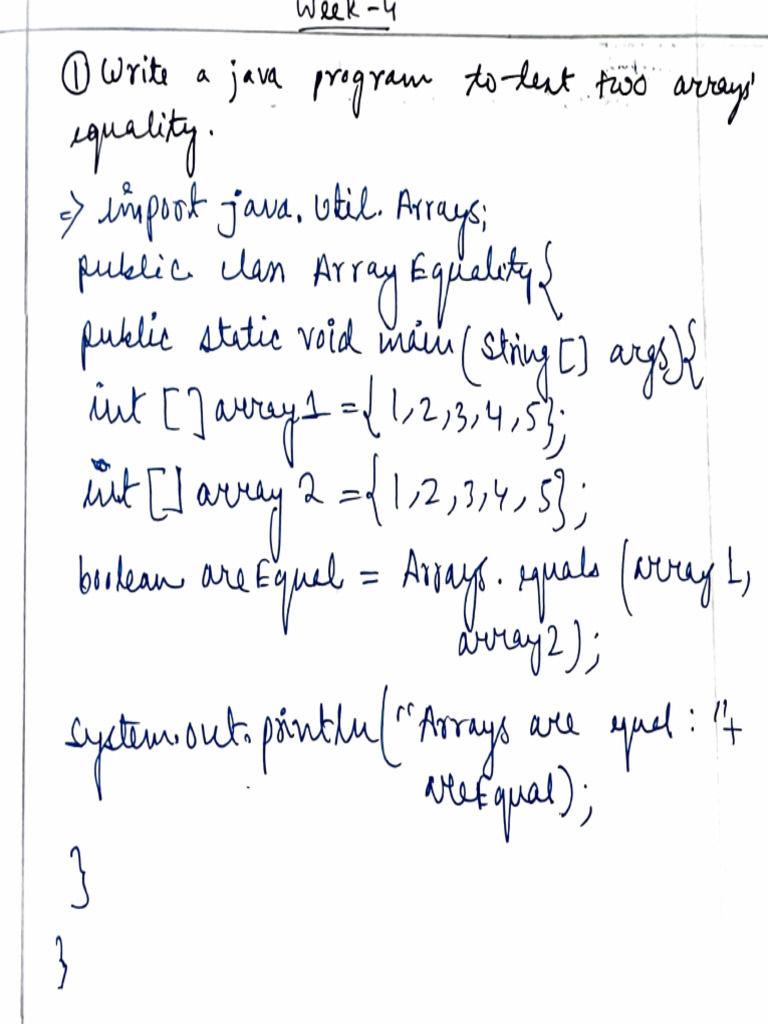 Week-4
① Write a java program to test two arrays'
equality.
=> import java.util.Arrays;
public class ArrayEquality{
public static void main(String[] args){
int []array1={1,2,3,4,5};
int[] array2={1,2,3,4,5};
boolean areEqual = Arrays.equals (array1,
array2);
system.out.println("Arrays are equal: "+
areEqual);
}
}